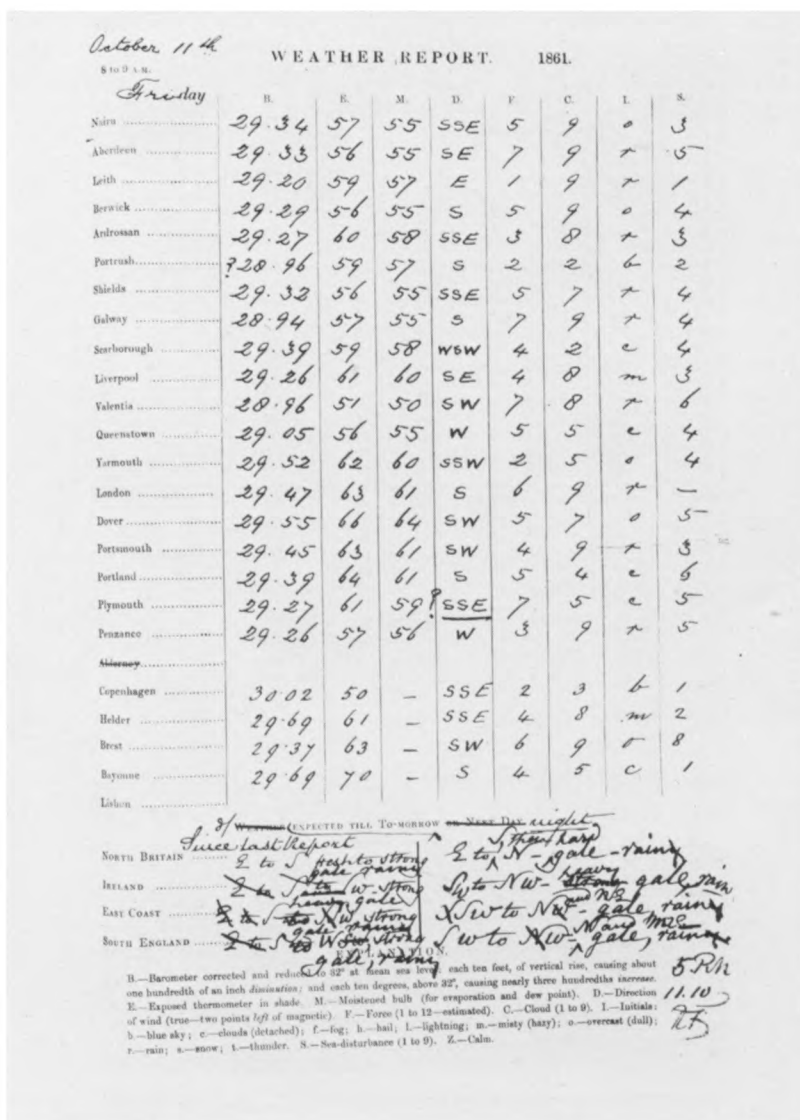 October 11th
WEATHER REPORT. 1861.
8 to 9 A.M.
Friday B. E. M. D. F. C. I. S.
Nairn 29.34 57 55 SSE 5 9 o 3
Aberdeen 29.33 56 55 SE 7 9 r 5
Leith 29.20 59 57 E 1 9 r 1
Berwick 29.29 56 55 S 5 9 o 4
Ardrossan 29.27 60 58 SSE 3 8 r 3
Portrush ?28.96 59 57 S 2 2 b 2
Shields 29.32 56 55 SSE 5 7 r 4
Galway 28.94 57 55 S 7 9 r 4
Scarborough 29.39 59 58 WSW 4 2 c 4
Liverpool 29.26 61 60 SE 4 8 m 3
Valentia 28.96 51 50 SW 7 8 r 6
Queenstown 29.05 56 55 W 5 5 c 4
Yarmouth 29.52 62 60 SSW 2 5 o 4
London 29.47 63 61 S 6 9 r —
Dover 29.55 66 64 SW 5 7 o 5
Portsmouth 29.45 63 61 SW 4 9 r 3
Portland 29.39 64 61 S 5 4 c 6
Plymouth 29.27 61 59 ? SSE 7 5 c 5
Penzance 29.26 57 56 W 3 9 r 5
Alderney
Copenhagen 30.02 50 — SSE 2 3 b 1
Helder 29.69 61 — SSE 4 8 m 2
Brest 29.37 63 — SW 6 9 o 8
Bayonne 29.69 70 — S 4 5 c 1
Lisbon
WEATHER EXPECTED TILL TO-MORROW OR NEXT DAY night
Since last Report
NORTH BRITAIN E to S fresh to strong gale rainy E to N - gale - rainy
IRELAND W - strong heavy gale SW to NW - heavy gale, rain
EAST COAST strong gale rainy SW to NW - and NE gale, rainy
SOUTH ENGLAND strong gale, rainy SW to gale, rainy
EXPLANATION.
B.—Barometer corrected and reduced to 32° at mean sea level: each ten feet, of vertical rise, causing about
one hundredth of an inch diminution; and each ten degrees, above 32°, causing nearly three hundredths increase.
E.—Exposed thermometer in shade. M.—Moistened bulb (for evaporation and dew point). D.—Direction
of wind (true—two points left of magnetic). F.—Force (1 to 12—estimated). C.—Cloud (1 to 9). I.—Initials:
b.—blue sky; c.—clouds (detached); f.—fog; h.—hail; l.—lightning; m.—misty (hazy); o.—overcast (dull);
r.—rain; s.—snow; t.—thunder. S.—Sea-disturbance (1 to 9). Z.—Calm.
11.10